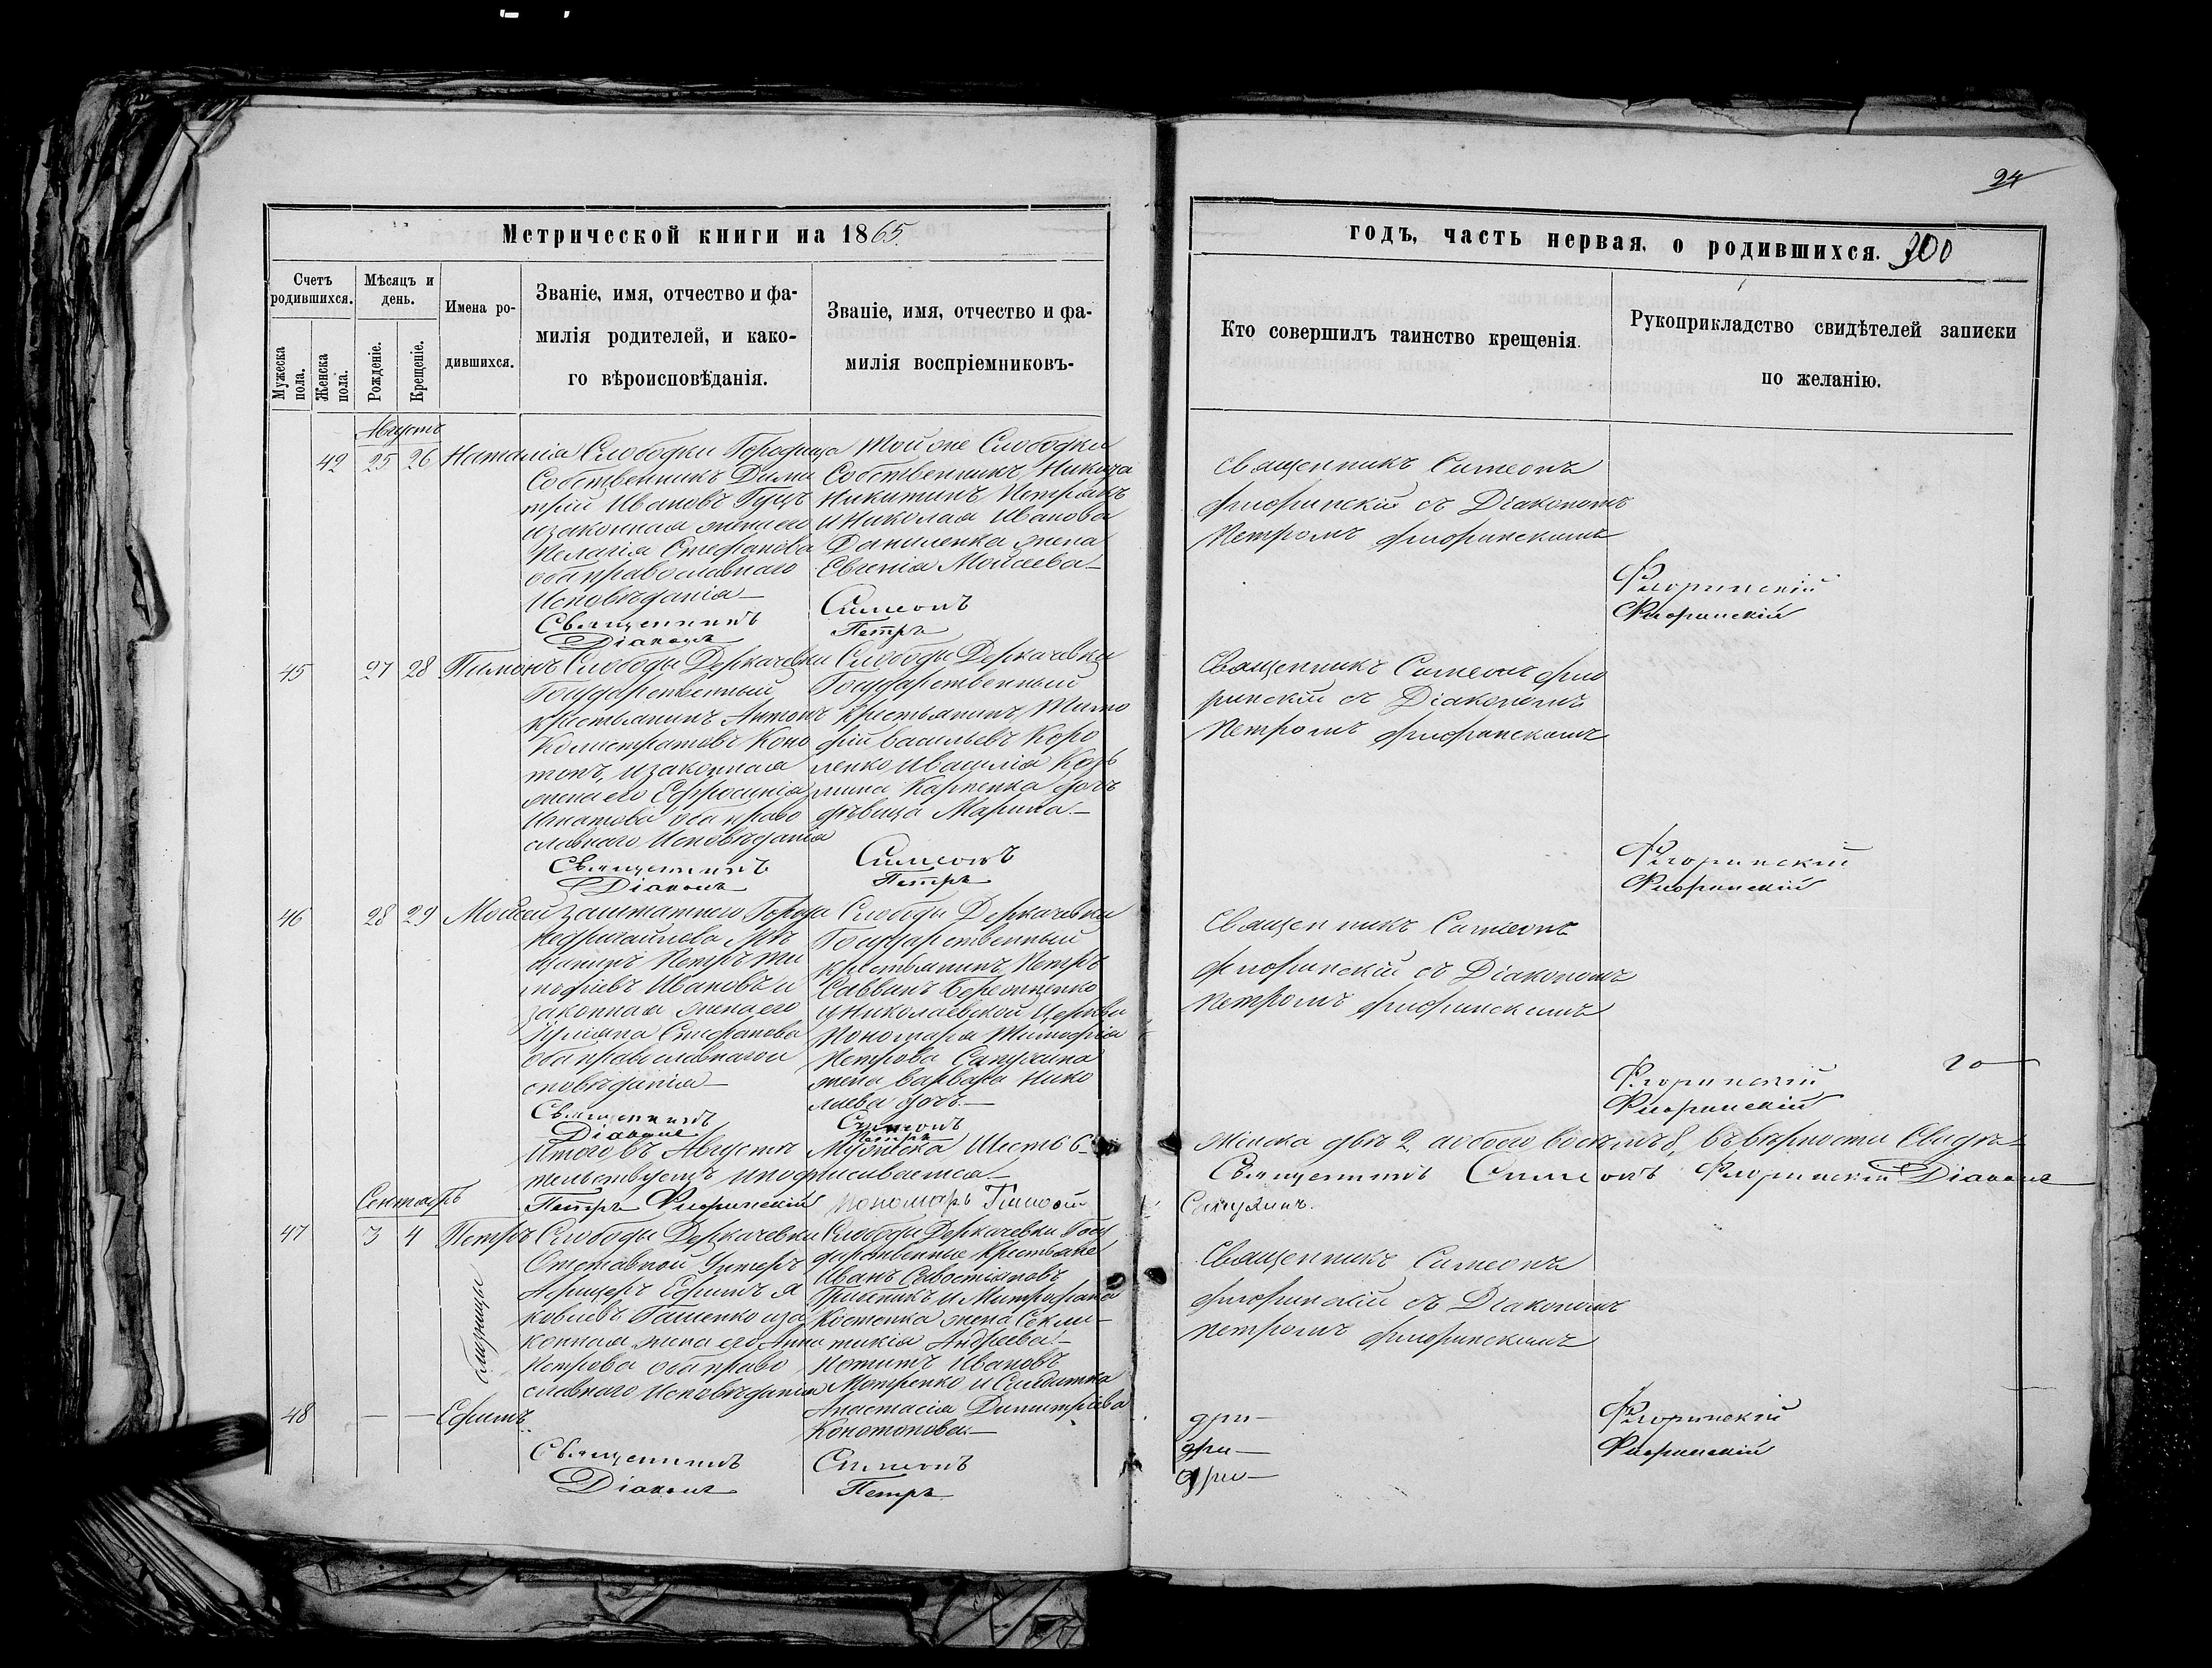 24
Метрической книги на 1865.
годъ, часть первая, о родившихся. 300
Счетъ родившихся.
Мужеска пола.
Женска пола.
Мѣсяцъ и день.
Рожденіе.
Крещеніе.
Имена родившихся.
Званіе, имя, отчество и фа-
милія родителей, и како-
го вѣроисповѣданія.
Званіе, имя, отчество и фа-
милія воспріемниковъ.
Кто совершилъ таинство крещенія.
Рукоприкладство свидѣтелей записки
по желанію.
Августъ
42 25 26 Наталія
Слободки Городища
Собственникъ Дими
трій Ивановъ Гуцъ
и законная жена его
Пелагія Стефанова
оба православнаго
Исповѣданія
Той же Слободки
Собственникъ Никита
Никитинъ Петрикъ
и Николая Иванова
Даниленка жена
Евгенія Мойсеева
Священникъ Симеонъ
Флоринскій съ Діакономъ
Петромъ Флоринскимъ
Священникъ Симеонъ Флоринскій
Діаконъ Петръ Флоринскій
45 27 28 Пименъ
Слободы Деркачевки
Государственный
крестьянинъ Антонъ
Калистратовъ Коно
топъ, и законная
жена его Ефросинія
Игнатова оба право
славнаго Исповѣданія
Слободы Деркачевки
Государственный
Крестьянинъ Тимо
фій Васильевъ Коро
ленко и Василія Козь
мина Карпенка дочь
дѣвица Марина
Священникъ Симеонъ Фло
ринскій съ Діакономъ
Петромъ Флоринскимъ
Священникъ Симеонъ Флоринскій
Діаконъ Петръ Флоринскій
46 28 29 Мойсей
Заштатнаго Города
Недригайлова Мѣ
щанинъ Петръ Ти
мофіевъ Ивановъ и
законная жена его
Іуліана Стефанова
оба православнаго и
сповѣданія
Слободы Деркачевки
Государственный
крестьянинъ Петръ
Саввинъ
и Николаевской Церкви
Пономаря Тимофія
Петрова Сапухина
жена Варвара Нико
лаева дочь
Священникъ Симеонъ
Флоринскій съ Діакономъ
Петромъ Флоринскимъ
Священникъ Симеонъ Флоринскій
Діаконъ Петръ Флоринскій
Итого въ Августѣ Мужеска Шесть 6 Женска двѣ 2, а обоего восемь 8, въ вѣрности Свидѣ-
тельствуемъ и подписываемся Священникъ Симеонъ Флоринскій Діаконъ
Петръ Флоринскій Пономарь Тимофій Сапухинъ.
Сентябрь
47 3 4 Петръ
близнецы
48 — — Ефимъ
Слободы Деркачевки
Отставной Унтеръ
Афицеръ Ефимъ Я
ковлевъ Гашенко и за
конная жена его Анна
Петрова оба право
славнаго Исповѣданія
Слободы Деркачевки Госу
дарственные Крестьяне
Иванъ Севостіановъ
и Митрофана
Костенка жена Секли-
тикія Андреева
Ивановъ
Мотренко и Солдатка
Анастасія Димитріева
Конотопова
Священникъ Симеонъ
Флоринскій съ Діакономъ
Петромъ Флоринскимъ
Священникъ Симеонъ Флоринскій
Діаконъ Петръ Флоринскій